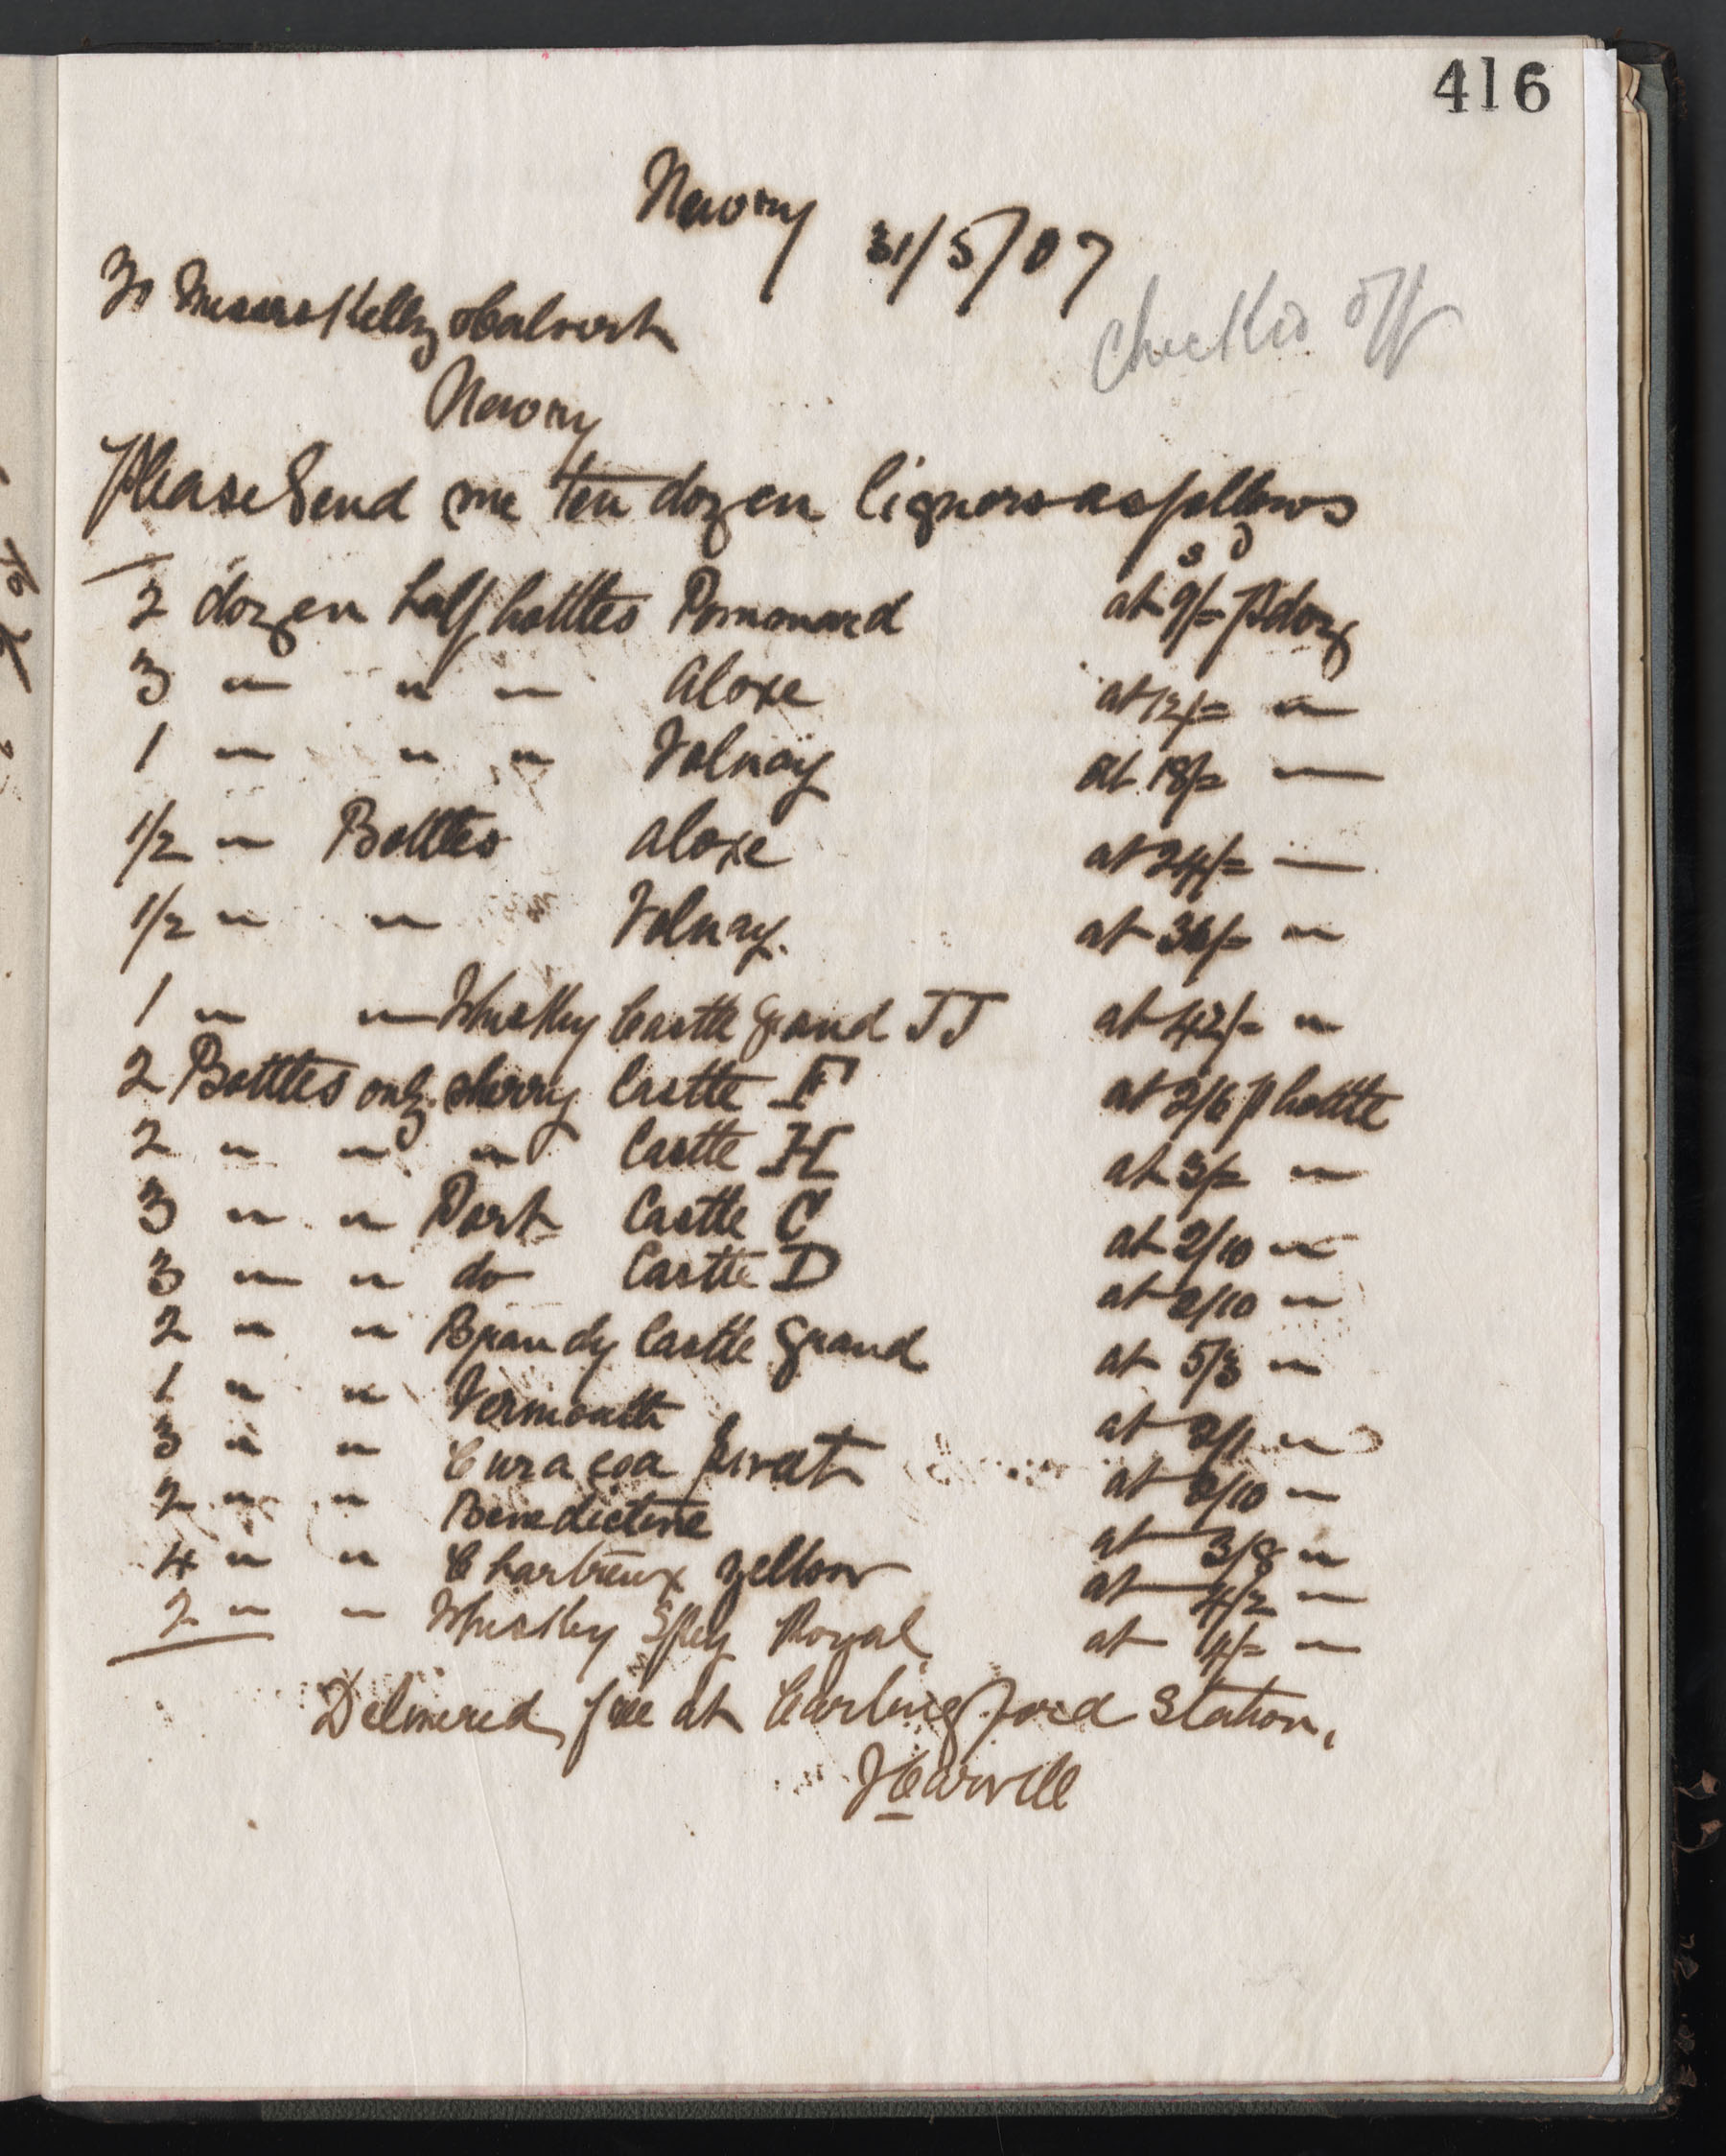 416
Newry 31/5/07
To Messrs Kelly & Calvert
Checked off
Newry
Please Send me ten dozen liquors as follows
s d
2 dozen half bottles Pommard at 9/= p doz
3 " " " Aloxe at 12/= "
1 " " " Volnay at 18/= "
1/2 " Bottles Aloxe at 24/= "
1/2 " " Volnay. at 36/= "
1 " " Whiskey Castle Grand JJ at 42/= "
2 Bottles only sherry Castle F at 2/6 p bottle
2 " " " Castle H at 3/= "
3 " " Port Castle C at 2/10 "
3 " " do Castle D at 2/10 "
2 " " Brandy Castle Grand at 5/3 "
1 " " Vermouth at 2/1 "
3 " " Curacoa at 2/10 "
2 " " Benedictine at 3/8 "
4 " " Chartreux yellow at 4/2 "
2 " " Whiskey Spey Royal at 4/= "
Delivered free at Carlingford Station,
J Carvill